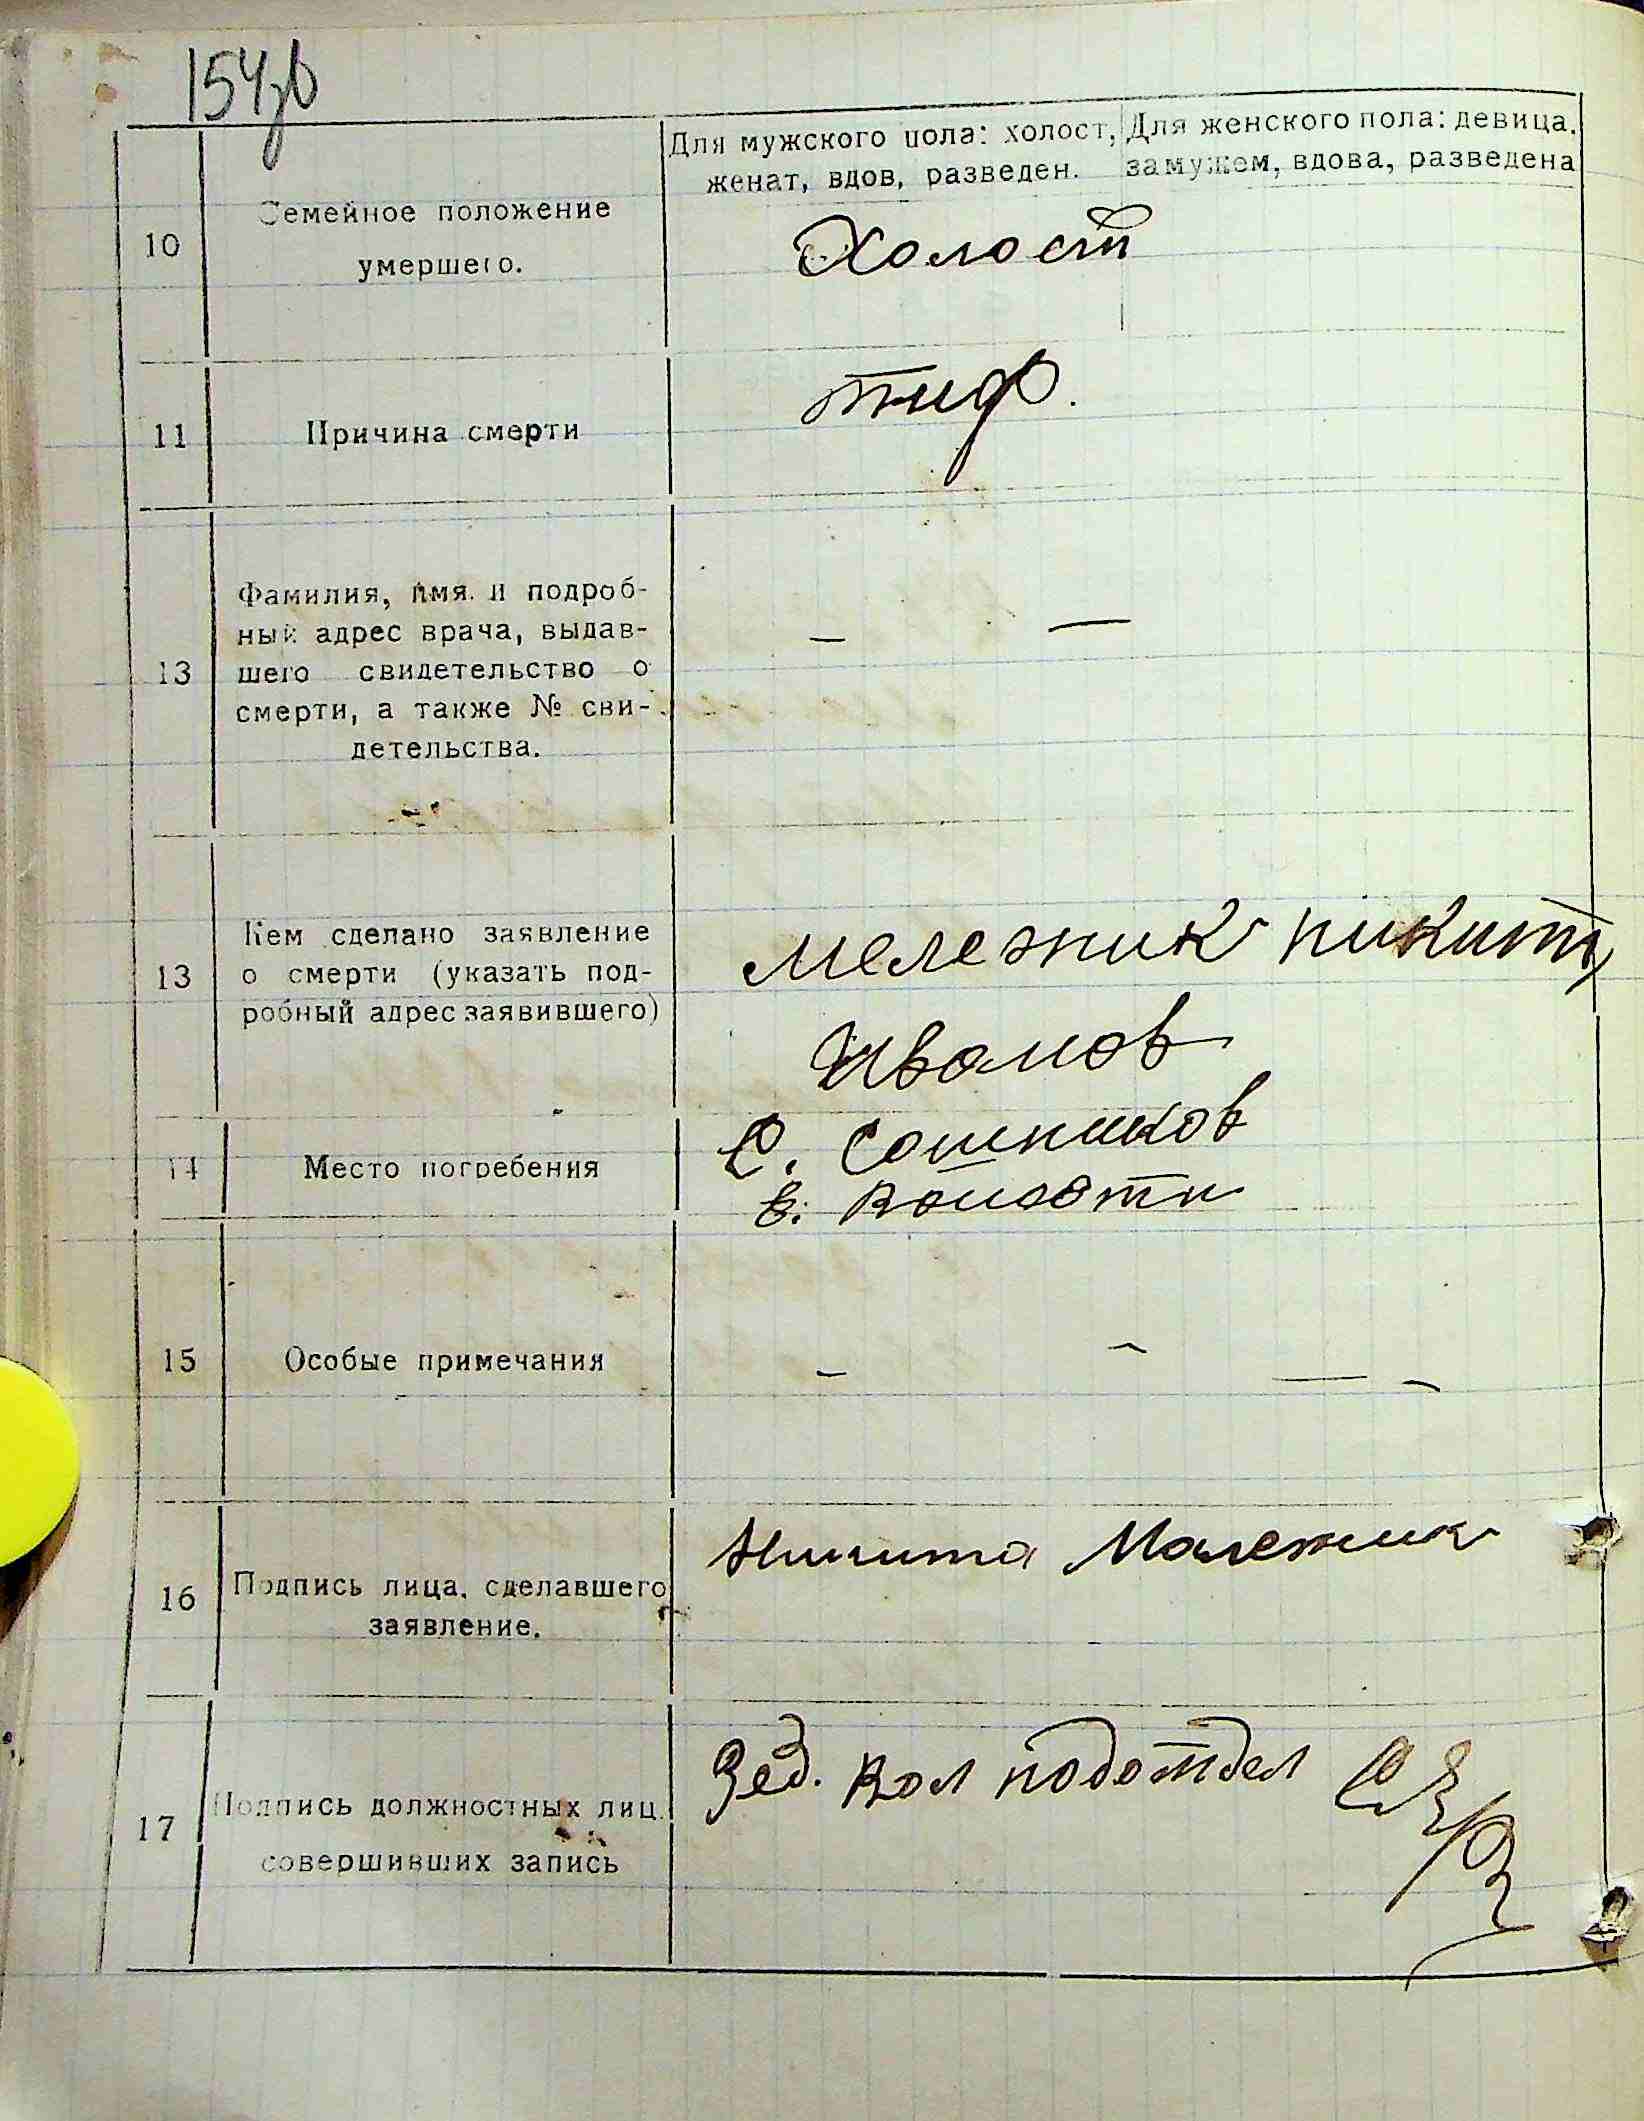 154об
Для мужского пола: холост, женат, вдов, разведен.
Для женского пола: девица, замужем, вдова, разведена
10
Семейное положение
умершего.
Холост
11
Причина смерти
тиф.
13
Фамилия, имя и подроб-
ный адрес врача, выдав-
шего свидетельство о
смерти, а также № сви-
детельства.
— —
13
Кем сделано заявление
о смерти (указать под-
робный адрес заявившего)
Мележик Никита
Иванов
14
Место погребения
С. Сотников
в. волости
15
Особые примечания
— — — —
16
Подпись лица, сделавшего
заявление.
Никита Малежик
17
Подпись должностных лиц,
совершивших запись
Зав. Вол подотдел